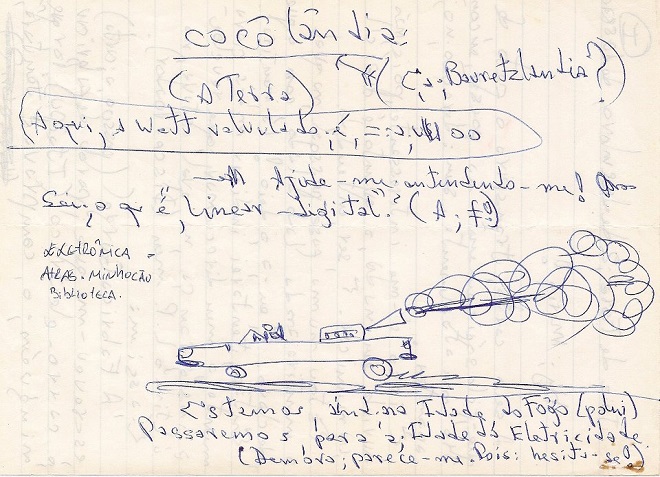 cocôlândia:
(A Terra) (Cá; Bauretzlandia?)
(Aqui, o Watt valvulado, é, =
Ajude-me entendendo-me!
o que é, "Linear-digital"? (A; fé)
ELETRÔMICA -
ATRÁS. MINHOCÃO
BiblioTECA.
Estamos ainda na Idade do Fôgo (polui)
Passaremos para a; Idade da Eletricidade.
(Demóra; paréce-me. Pois: hesita-se!)